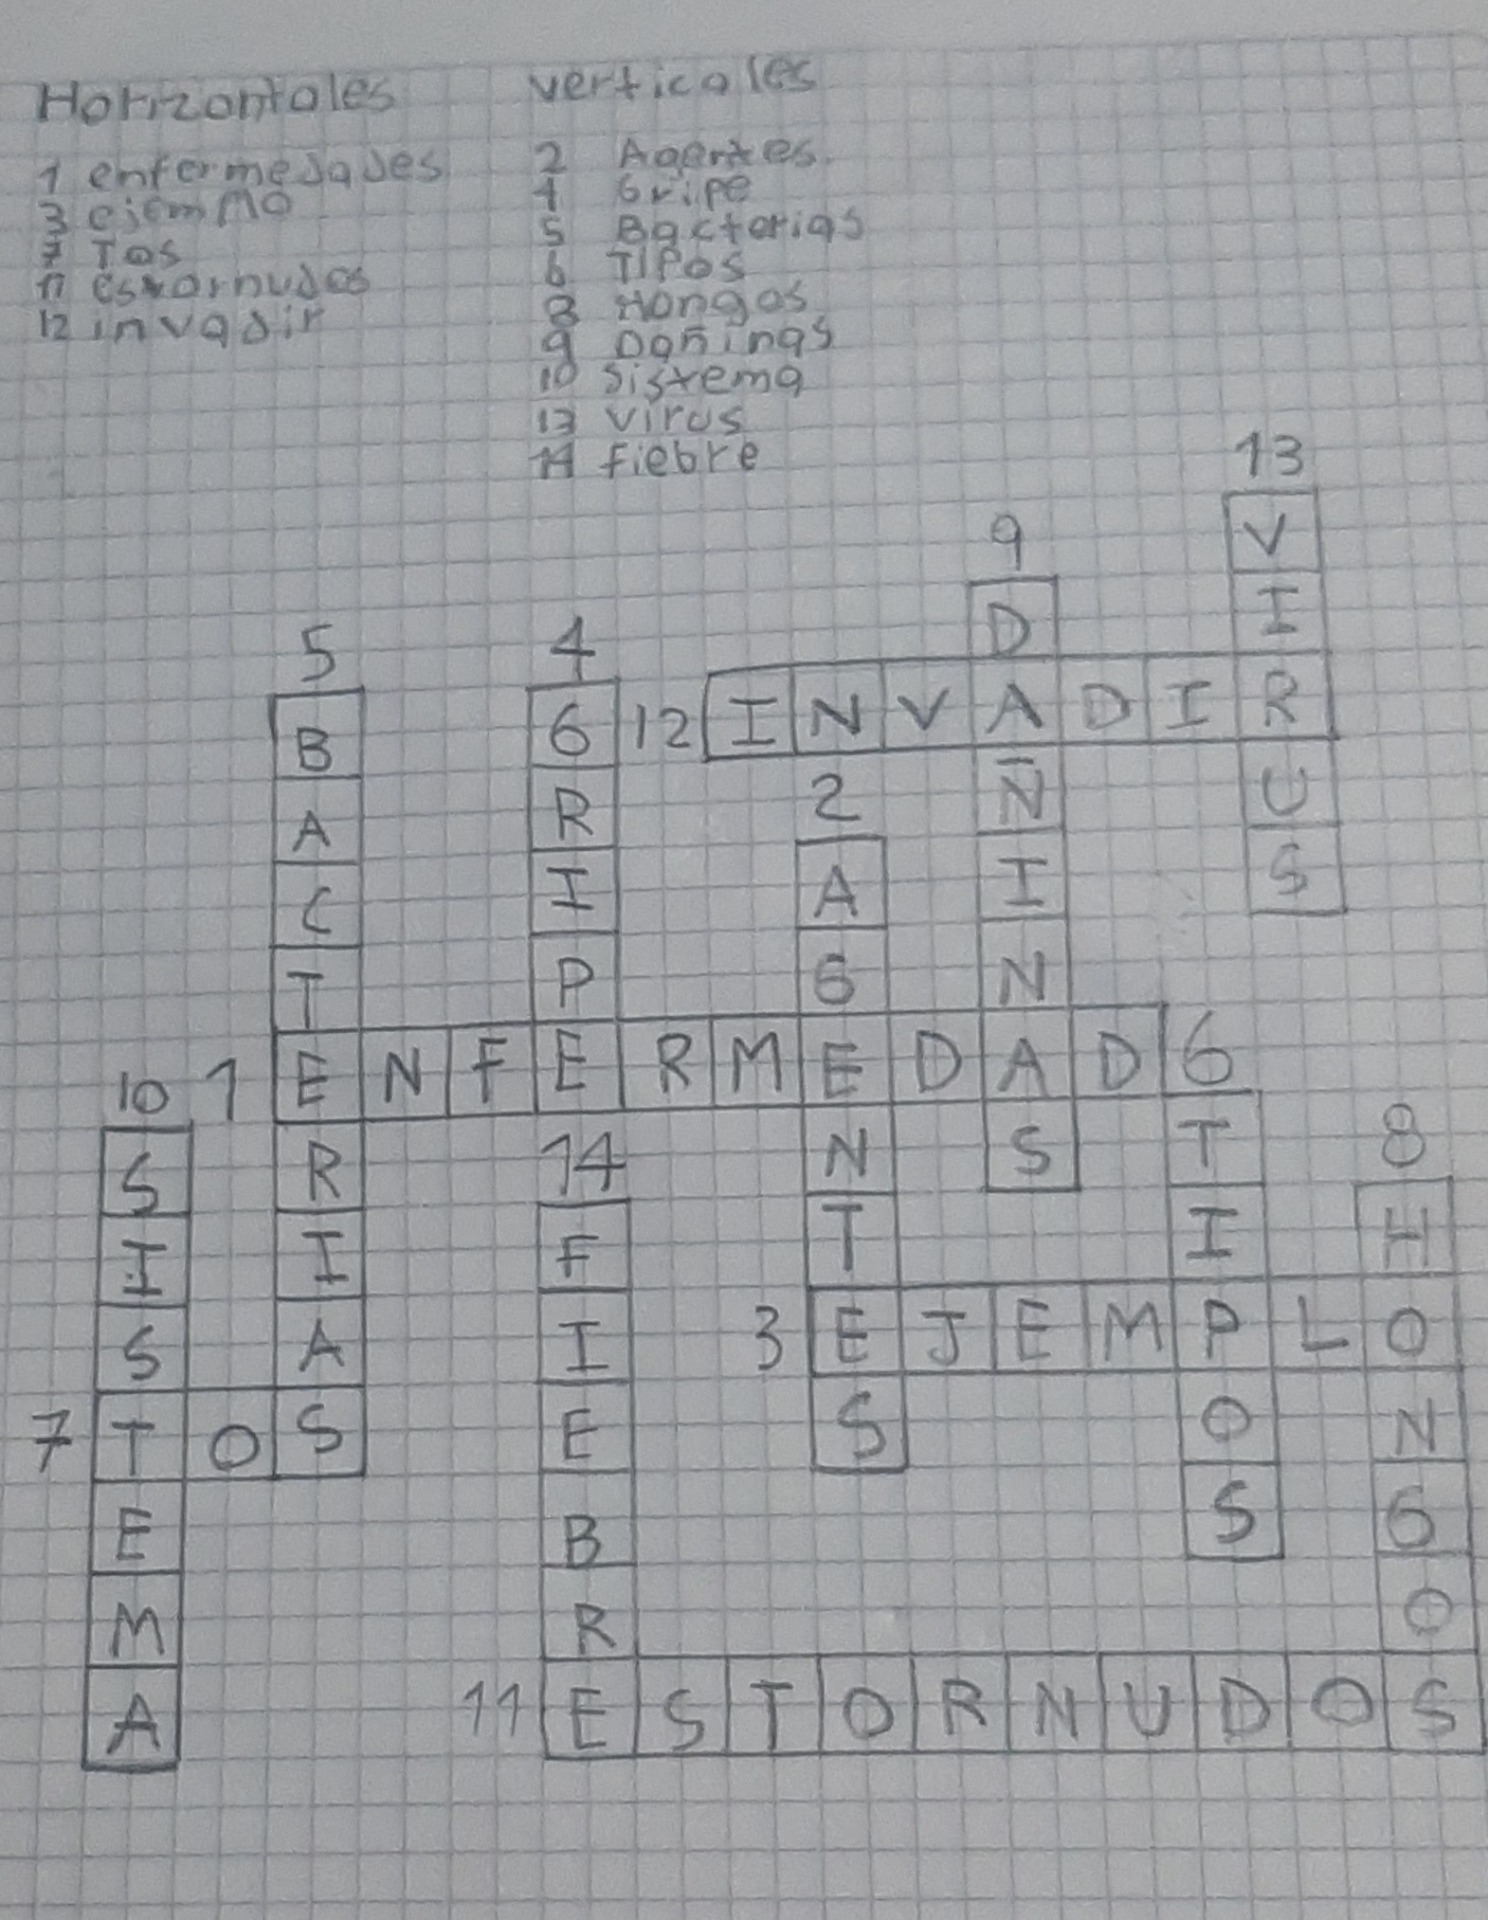 Horizontales
verticales
1 enfermedades
3 ejemplo
7 Tos
11 estornudos
12 invadir
2 Agentes.
4 Gripe
5 Bacterias
6 TIPOS
8 Hongos
9 Dañinas
10 Sistema
13 Virus
14 fiebre
13
9
V
D
I
5
4
B
G
12 I N V A D I R
A
R
2
Ñ
U
C
I
A
I
S
T
P
G
N
10 1 E N F E R M E D A D 6
8
S
R
14
N
S
T
I
I
F
T
I
H
S
A
I
3 E J E M P L O
7 T O S
E
S
O
N
E
B
S
G
M
R
O
A
11 E S T O R N U D O S